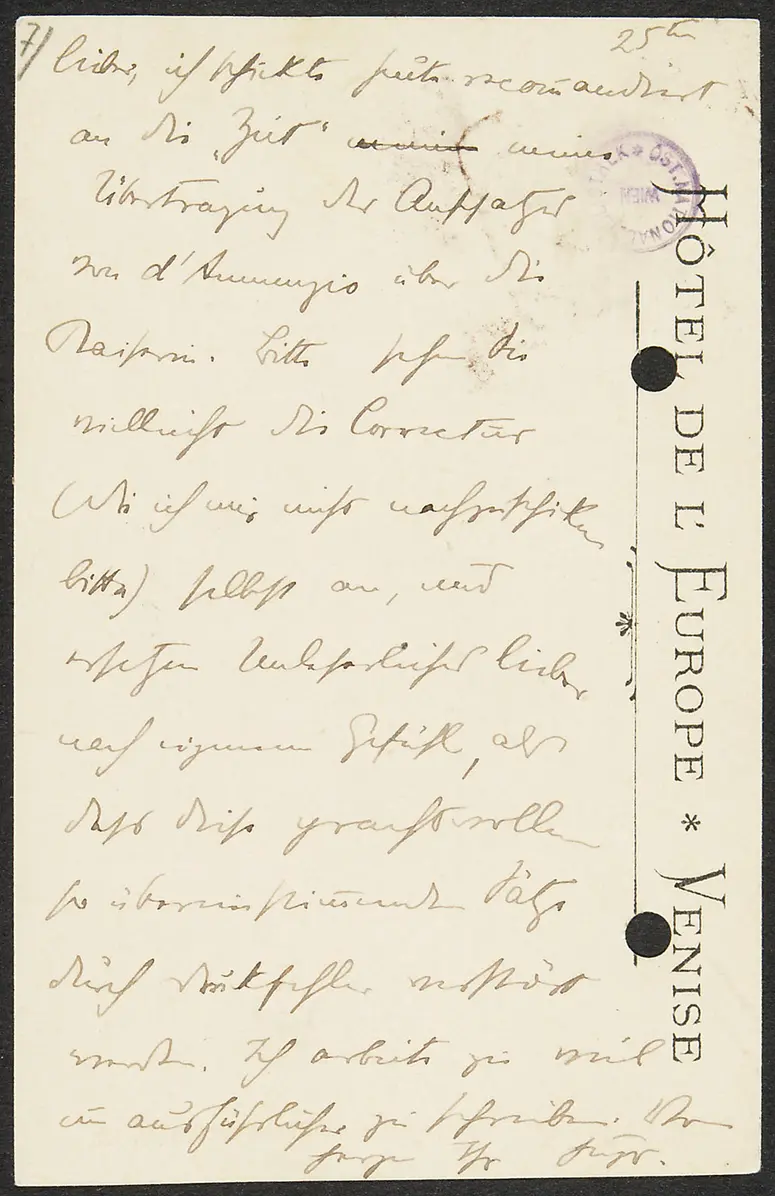 7/
25ten
lieber, ich schickte heute recomandiert
an die „Zeit“ meine meine
Übertragung des Aufsatzes
von d'Annunzio über die
Kaiserin. Bitte sehen Sie
vielleicht die Correctur
(die ich mir nicht nachzuschiken
bitte) selbst an, und
ersetzen Unleserliches lieber
nach eigenem Gefühl, als
dass diese prachtvollen
so übereinstimmenden Sätze
durch Drukfehler verstört
werden. Ich arbeite zu viel
um ausführlicher zu schreiben. Von
Herzen Ihr Hugo.
HÔTEL DE L'EUROPE * VENISE
ÖST. NATIONAL
WIEN